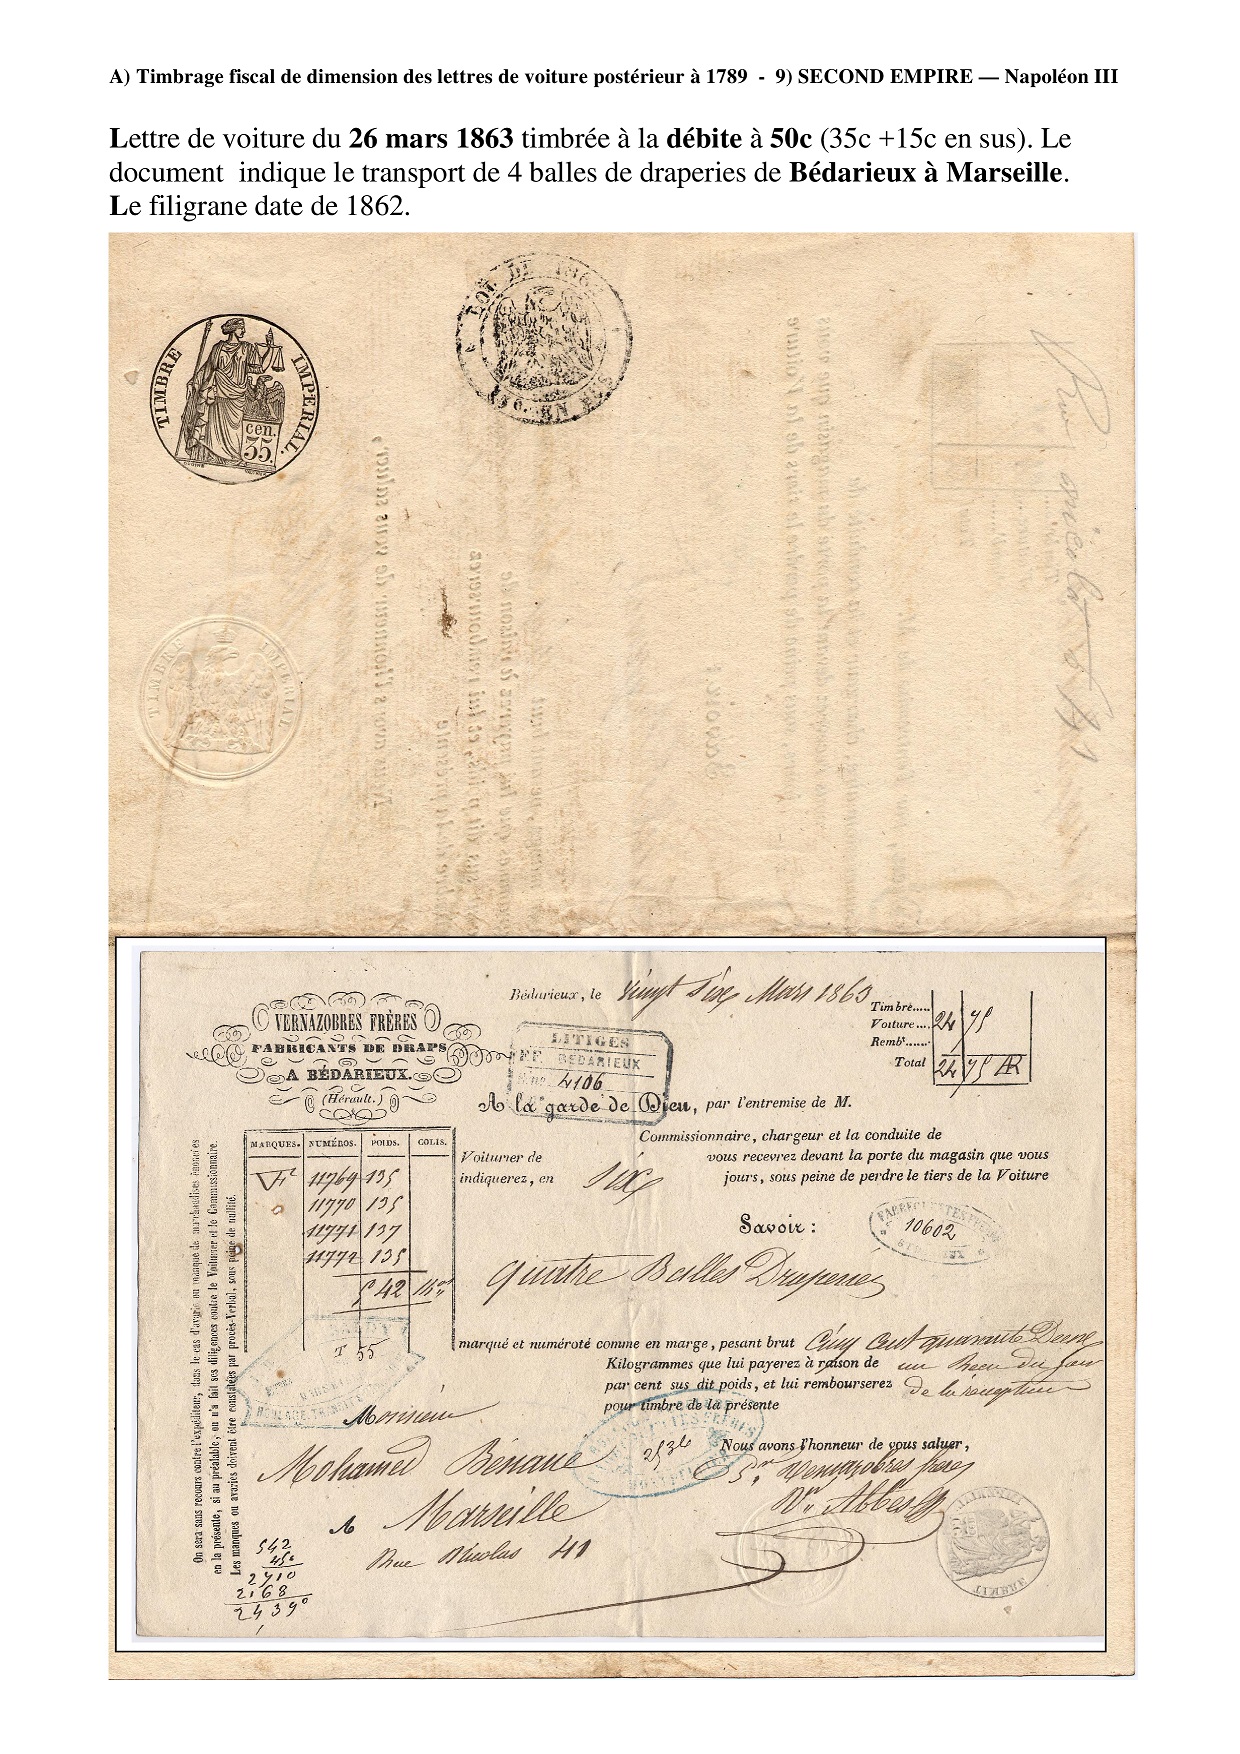 A) Timbrage fiscal de dimension des lettres de voiture postérieur à 1789 - 9) SECOND EMPIRE — Napoléon III
Lettre de voiture du 26 mars 1863 timbrée à la débite à 50c (35c +15c en sus). Le
document indique le transport de 4 balles de draperies de Bédarieux à Marseille.
Le filigrane date de 1862.
TIMBRE IMPERIAL.
cen.
35.
LOI DE 1862
EN SUS
TIMBRE IMPERIAL
Bédarieux, le Vingt Six Mars 1863
VERNAZOBRES FRÈRES
FABRICANTS DE DRAPS
A BÉDARIEUX.
(Hérault.)
LITIGES
BÉDARIEUX
4106
Timbre.....
Voiture.... 24 75
Rembt......
Total 24 75
A la garde de Dieu, par l'entremise de M.
Commissionnaire, chargeur et la conduite de
Voiturier de vous recevrez devant la porte du magasin que vous
indiquerez, en six jours, sous peine de perdre le tiers de la Voiture
MARQUES. NUMÉROS. POIDS. COLIS.
11769 135
11770 135
11771 137
11772 135
542
T 55
Savoir :
10602
quatre Balles Draperies
marqué et numéroté comme en marge, pesant brut Cinq Cent quarante Deux
Kilogrammes que lui payerez à raison de
par cent sus dit poids, et lui rembourserez de la réception
pour timbre de la présente
Nous avons l'honneur de vous saluer,
Vernazobres frères
Monsieur
Mohamed
A Marseille
Rue Nicolas 41
542
450
2710
2168
24390
On sera sans recours contre l'expéditeur, dans le cas d'avarie ou manque de marchandises énoncées
en la présente, si au préalable, on n'a fait ses diligences contre le Voiturier et le Commissionnaire.
Les manques ou avaries doivent être constatées par procès-Verbal, sous peine de nullité.
TIMBRE